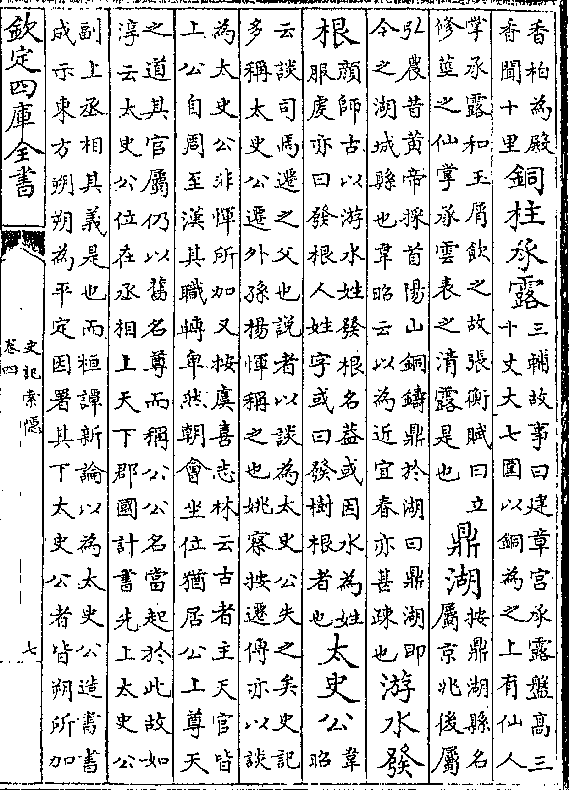 香柏為殿
香聞十里
銅柱承露
三輔故事曰建章宮承露盤髙三
十丈大七圍以銅為之上有仙人
掌承露和玉屑飲之故張衡賦曰立
修莖之仙掌承雲表之清露是也
鼎湖
按鼎湖縣名
屬京兆後屬
弘農昔黄帝採首陽山銅鑄鼎於湖曰鼎湖即
今之湖城縣也韋昭云以為近宜春亦甚疎也
游水發
根
顔師古以游水姓發根名葢或因水為姓
服䖍亦曰發根人姓字或曰發樹根者也
太史公
韋
昭
云談司馬遷之父也説者以談為太史公失之矣史記
多稱太史公遷外孫楊惲稱之也姚察按遷傳亦以談
為太史公非惲所加又按虞喜志林云古者主天官皆
上公自周至漢其職轉卑然朝會坐位猶居公上尊天
之道其官屬仍以舊名尊而稱公公名當起於此故如
淳云太史公位在丞相上天下郡國計書先上太史公
副上丞相其義是也而桓譚新論以為太史公造書書
成示東方朔朔為平定因署其下太史公者皆朔所加
欽定四庫全書
史記索隱
卷四
七